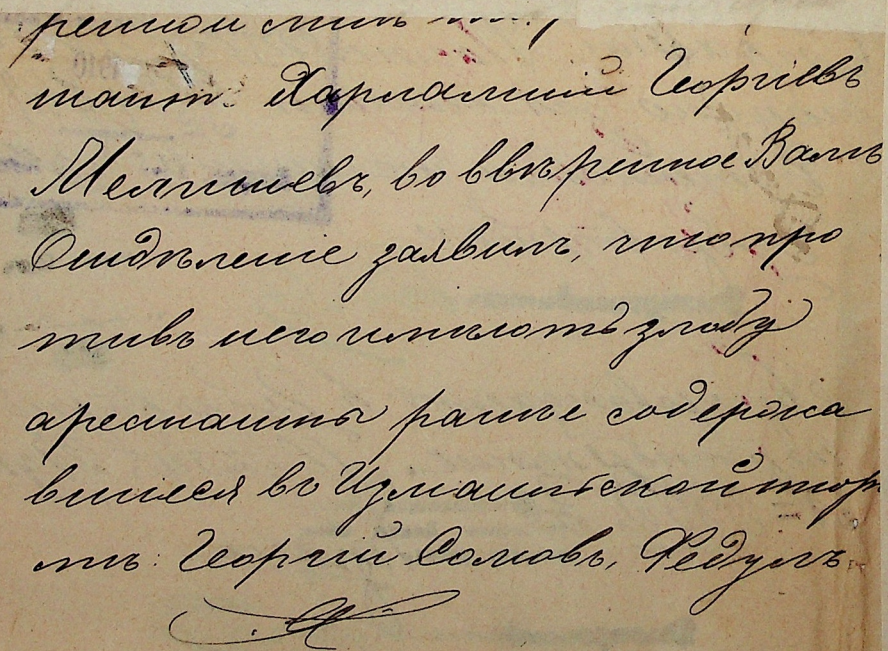 ренной мнѣ
тантъ Харлампий Георгіевъ
Мелишевъ, во ввѣренное Вамъ
Отдѣленіе заявилъ, что про
тивъ него имѣютъ злобу
арестанты ранѣе содержа
вшиеся въ Измаильской тюрь
мѣ: Георгій Сомовъ, Федулъ